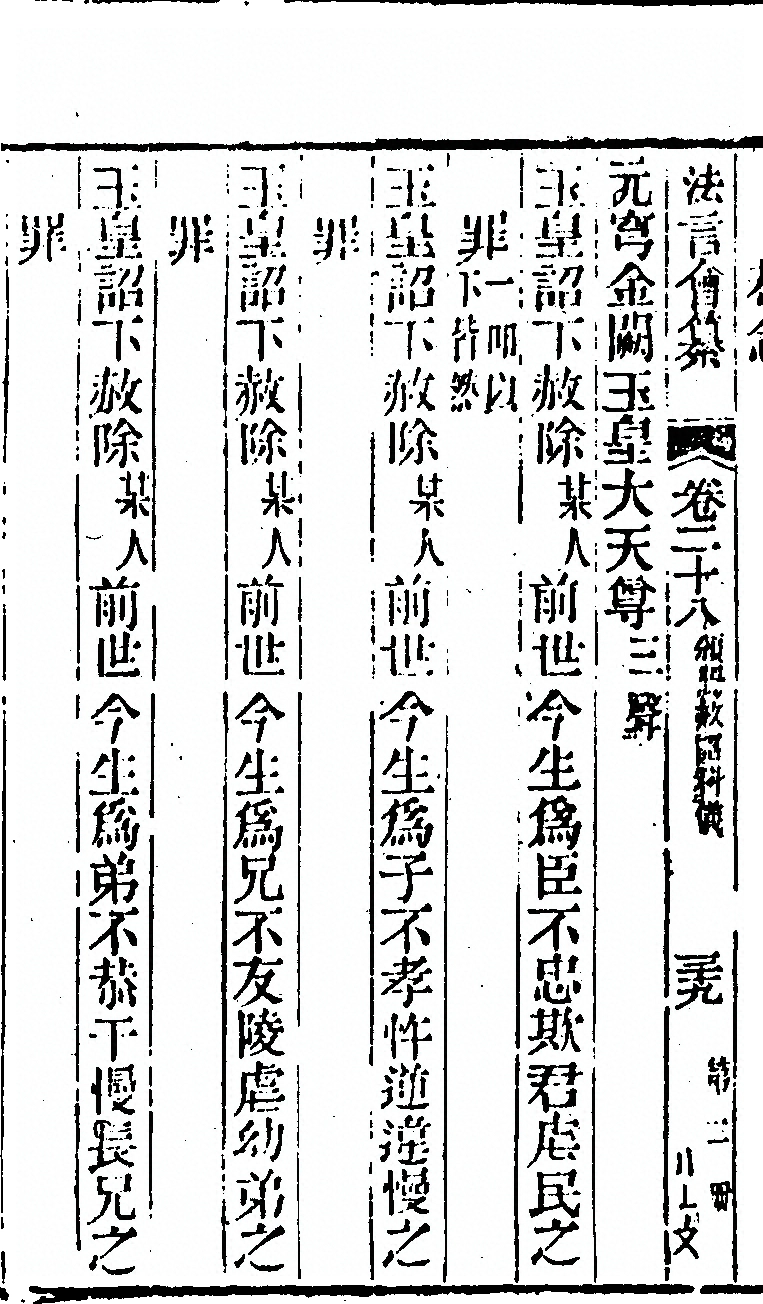 法言會纂 卷二十八 頒詔赦罪科儀 三九 第二冊 川上文
元穹金闕玉皇大天尊三聲
玉皇詔下赦除某人前世今生爲臣不忠欺君虐民之
罪一叩以下皆然
玉皇詔下赦除某人前世今生爲子不孝忤逆違慢之
罪
玉皇詔下赦除某人前世今生爲兄不友陵虐幼弟之
罪
玉皇詔下赦除某人前世今生爲弟不恭干慢長兄之
罪